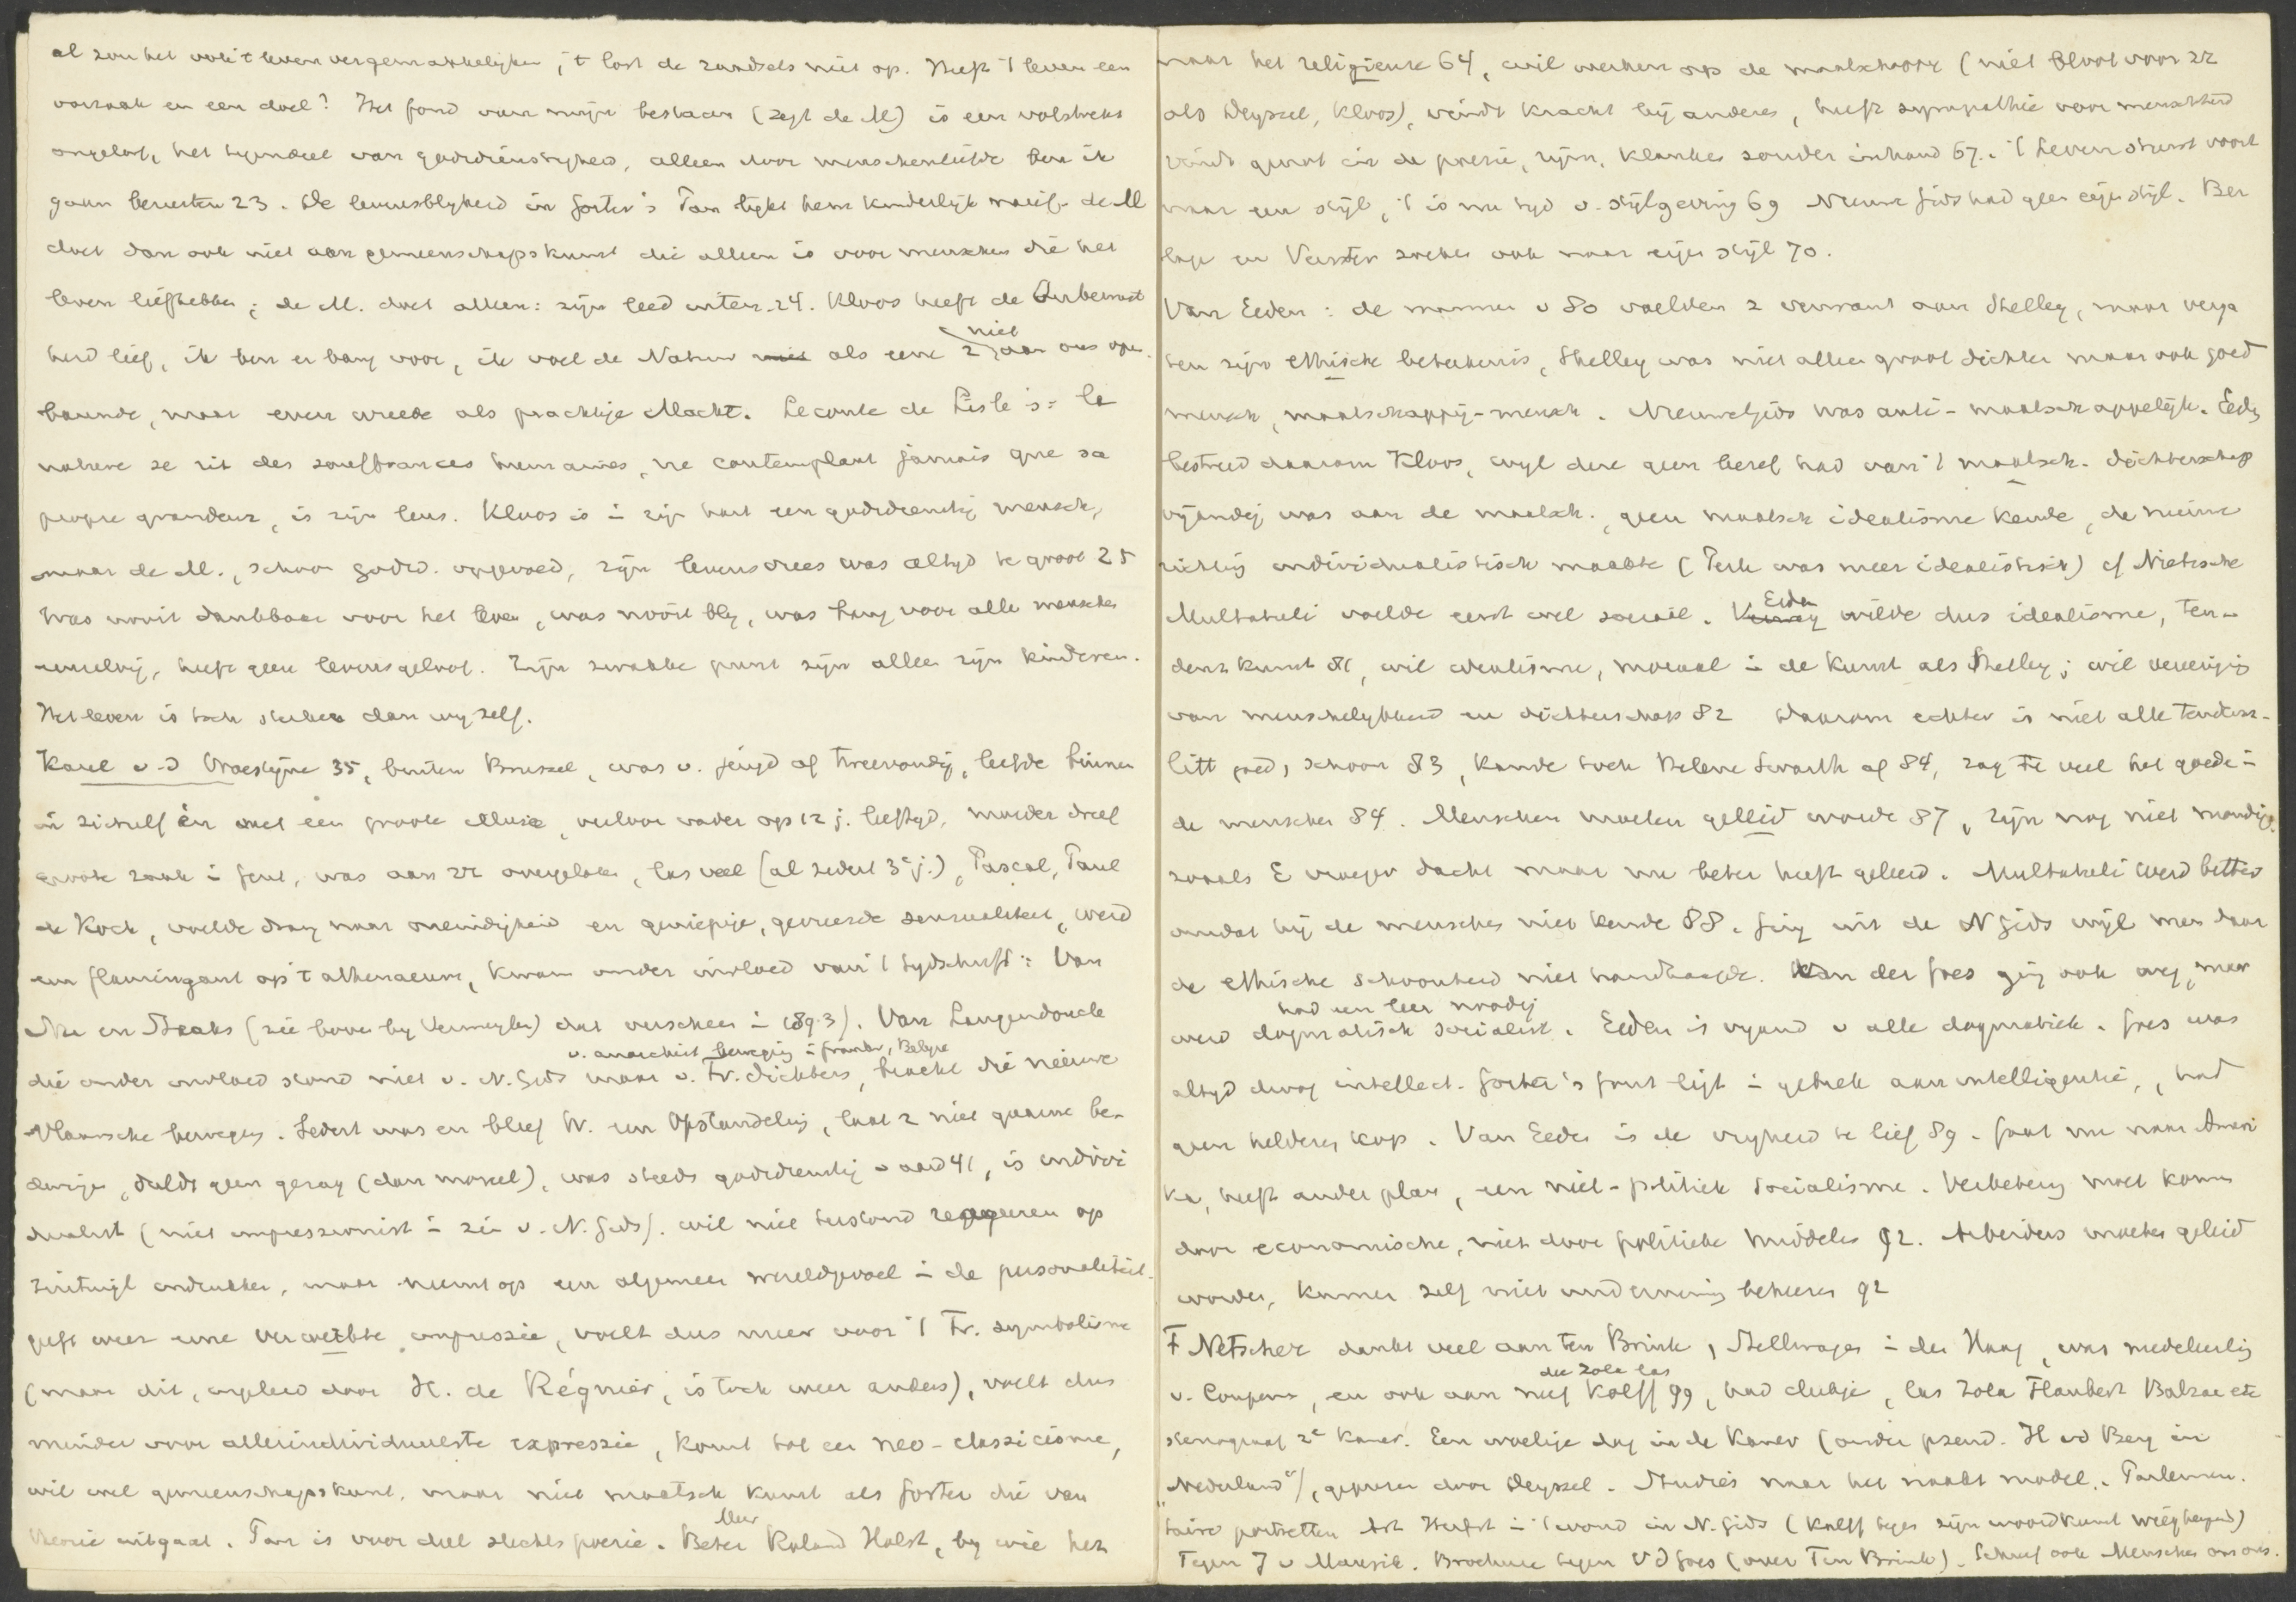 al zou het ook 't leven vergemakkelyken, 't lost de raadsels niet op. Heeft 't leven een
oorzaak en een doel? Het fond van mijn bestaan (zegt de M) is een volstrekt
ongeloof, het tegendeel van godsdienstigheid, alleen door menschenliefde ben ik
gaan berusten 23. De levensblyheid in Gorter's Pan lijkt hem kinderlijk naief. de M
doet dan ook niet aan gemeenschapskunst die alleen is voor menschen die het
leven liefhebben; de M. doet alleen: zijn leed uiten. 24. Kloos heeft de Onbewust
heid lief, ik ben er bang voor, ik voel de Natuur als eene z niet aan ons open
baarende, maar even wreede als prachtige Macht. Leconte de Lisle's: la
nature se rit des souffrances humaines, ne contemplant jamais que sa
propre grandeur, is zijn leus. Kloos is i zijn hart een godsdienstig mensch,
maar de M., schoon godsd. opgevoed, zijn levensvrees was altyd te groot 25
Was nooit dankbaar voor het leven, was nooit bly, was bang voor alle menschen
heeft geen levensgeloof. Zijn zwakke punt zijn alleen zijn kinderen.
Het leven is toch sterker dan wyzelf.
Karel v.d Woestijne 35, buiten Brussel, was v. jeugd af, leefde binnen
in zichzelf en met een groote illusie, verloor vader op 12 j. leeftyd, moeder dreef
groote zaak i Gent, was aan zz overgelaten, las veel (al sedert 3e j.), Pascal, Paul
de Kock, voelde drang naar oneindigheid en sensualiteit, werd
een flamingant op 't athenaeum, kwam onder invloed van 't tydschrift: Van
Nu en Straks (zie boven by Vermeylen) dat verscheen i 1893). Van Langendonck
die onder invloed stond niet v. N. Gids maar v. Fr. dichters, v. anarchist. beweging i Frankr., Belgie bracht die nieuwe
Vlaamsche beweging. Sedert was en bleef W. een Opstandeling, laat z niet gaarne be-
, duldt geen gezag (dan moreel), was steeds godsdienstig v aard 41, is indivi
dualist (niet impressionist i zin v. N. Gids). wil niet terstond reageeren op
zintuigl indrukken, maar neemt op een algemeen wereldgevoel i de personaliteit.
geft weer eene verwerkte impressie, voelt dus meer voor 't Fr. symbolisme
(maar dit, ingeleid door H. de Régnier, is toch weer anders), voelt dus
minder voor allerindividueelste expressie, komt tot een neo-classicisme,
wil wel gemeenschapskunst, maar niet maatsch kunst als Gorter die van
theorie uitgaat. Pan is voor deel slechts poezie. Beter Mevr Roland Holst, by wie het
naar het religieuze 64, wil werken op de maatschappy (niet bloot voor zz
als Deyssel, Kloos), vindt kracht bij anderen, heeft sympathie voor menschheid
vindt genot in de poezie, rijm, klanken zonder inhoud 67. 't Leven stuwt voort
naar een stijl, 't is nu tyd v. stijlgeving 69 Nieuwe Gids had geen eigen stijl. Ber
lage en Verster zoeken ook naar eigen stijl 70.
Van Eeden: de mannen v 80 voelden z verwant aan Shelley, maar verga
ten zijn ethische beteekenis, Shelley was niet alleen groot dichter maar ook goed
mensch, maatschappij-mensch. Nieuwe Gids was anti-maatschappelijk. Eeden
bestreed daarom Kloos, wyl deze geen besef had van 't maatsch. dichterschap
vijandig was aan de maatsch., geen maatsch idealisme kende, de nieuwe
richting individualistisch maakte (Perk was meer idealistisch) cf Nietsche
Multatuli voelde eerst wel sociaal. Eeden wilde dus idealisme, ten-
denz kunst 81, wil idealisme, moraal i de kunst als Shelley; wil vereeniging
van menschelykheid en dichterschap 82 Daarom echter is niet alle tendenz-
litt goed, schoon 83, keurde toch Helene Swarth af 84, zag te veel het goede i
de menschen 84. Menschen moeten geleid worden 87, zijn nog niet mondig
zooals E vroeger dacht maar nu beter heeft geleerd. Multatuli werd bitter
omdat hij de menschen niet kende 88. ging uit de N Gids wijl men daar
de ethische schoonheid niet handhaafde. Van der Goes ging ook weg, maar
werd dogmatisch socialist, had een leer noodig. Eeden is vyand v alle dogmatiek. Goes was
altyd droog intellect. Gorter's fout ligt i gebrek aan intelligentie, had
geen helderen kop. Van Eeden is de vryheid te lief 89. Gaat nu naar Ameri
ka, heeft ander plan, een niet-politiek socialisme. Verbetering moet komen
door economische, niet door politieke middelen 92. Arbeiders moeten geleid
worden, kunnen zelf niet onderneming beheeren 92
F Netscher dankt veel aan ten Brink, Stellwagen i den Haag, was medeleerling
v. Couperus, en ook aan neef Kolff die Zola las 99, had clubje, las Zola Flaubert Balzac etc
stenograaf 2e kamer. Een woelige dag in de Kamer (onder pseud. H vd Berg in
„Nederland"), geprezen door Deyssel. Studies naar het naakt model. Parlemen.
taire portretten Art Herfst i 't woud in N. Gids (Kolff tegen zijn woordkunst)
Tegen J v Maurik. Brochure tegen VD Goes (over Ten Brink). Schreef ook Menschen om ons.